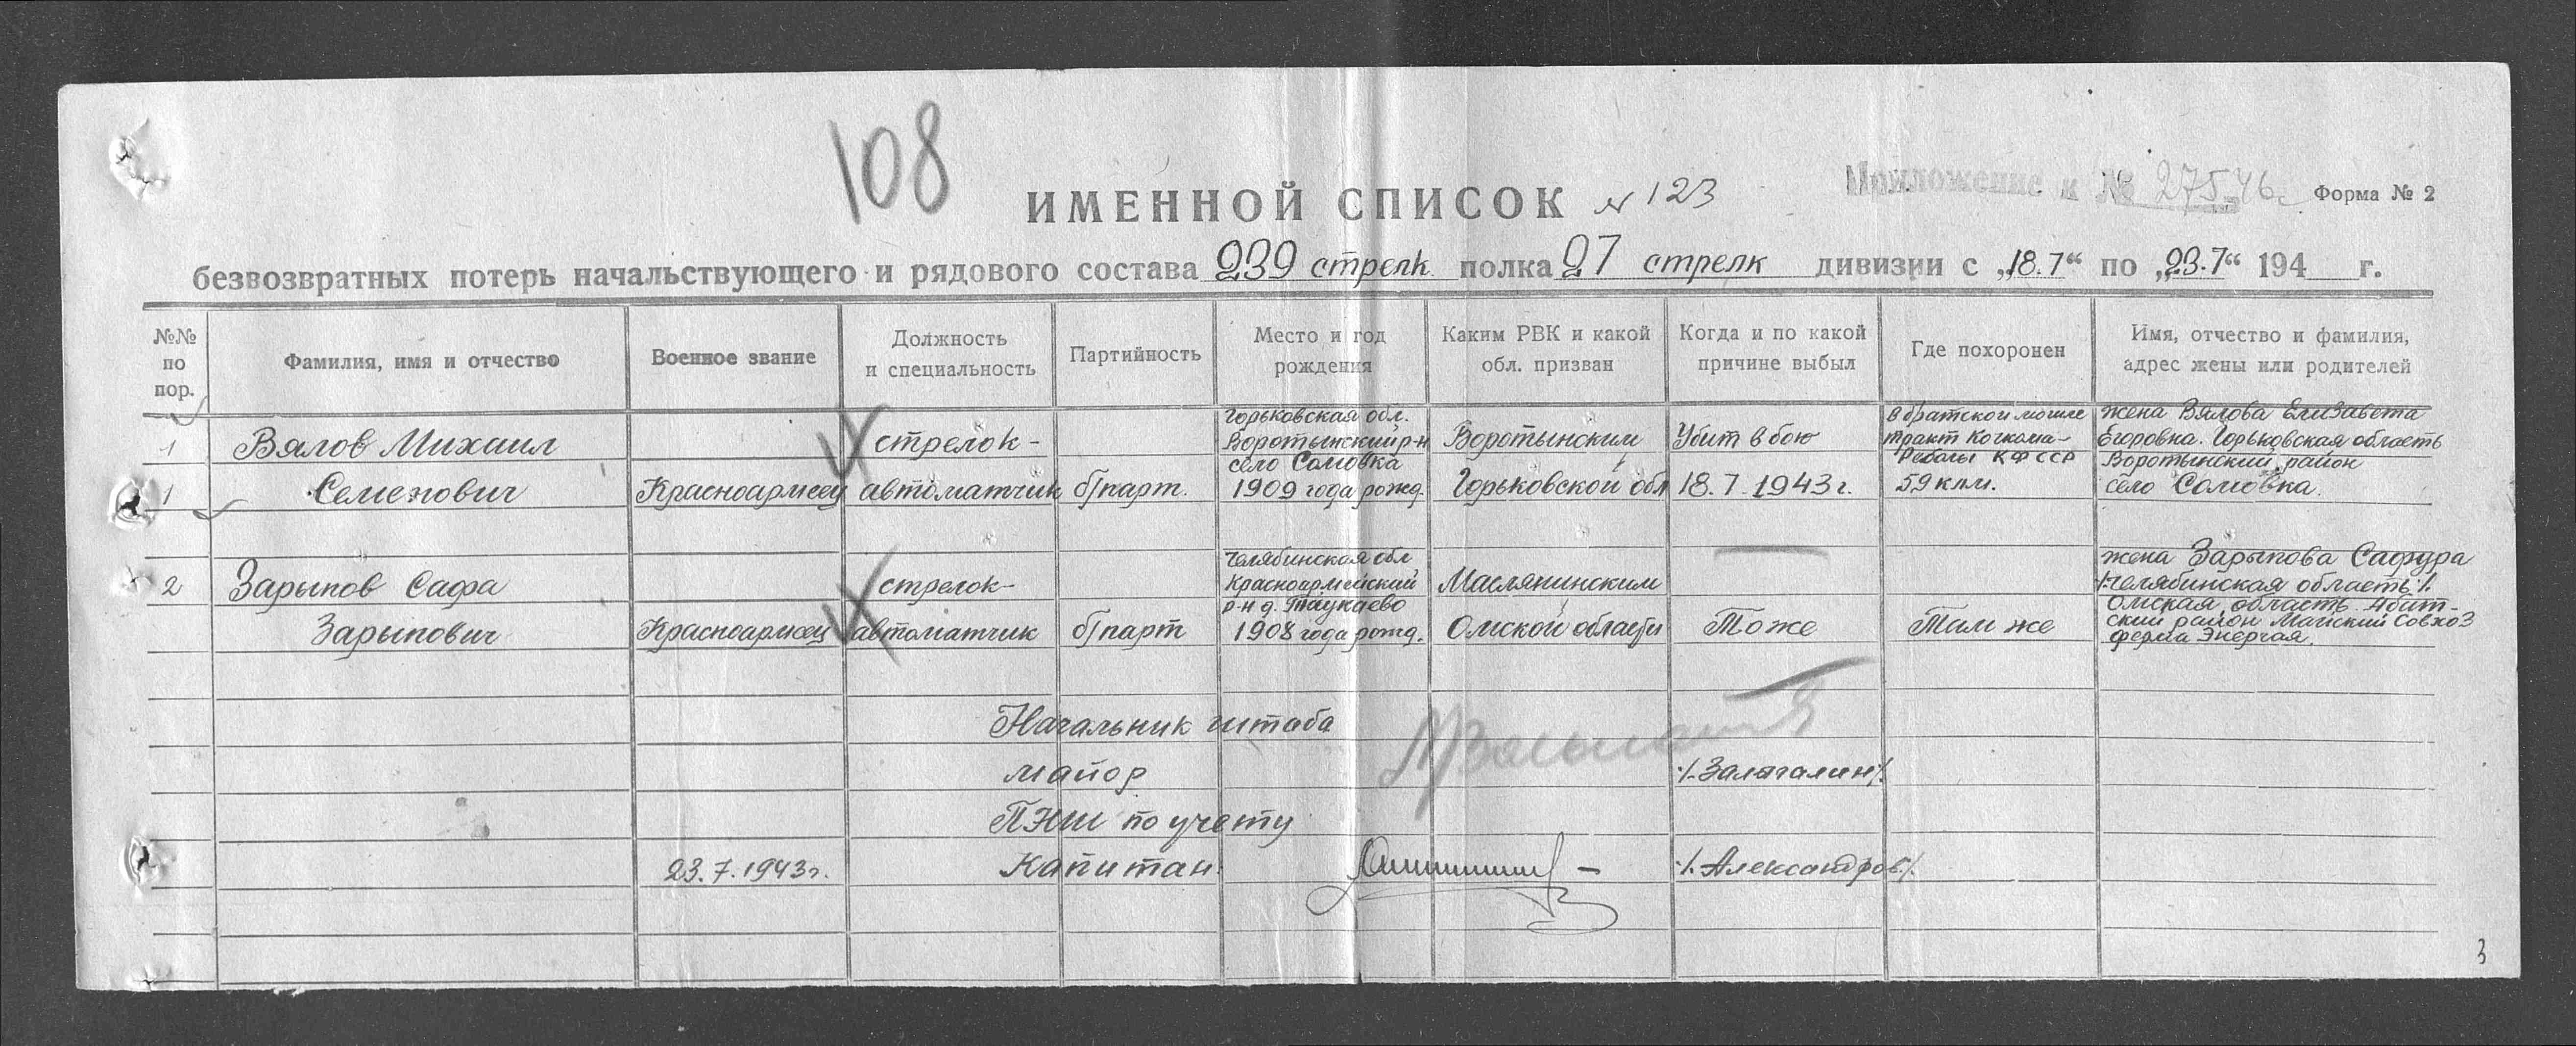 108
ИМЕННОЙ СПИСОК № 123
Приложение к № 275 46г
Форма № 2
безвозвратных потерь начальствующего и рядового состава 239 стрелк. полка 27 стрелк дивизии с „18.7“ по „23.7“ 194 г.
№№ по пор.
Фамилия, имя и отчество
Военное звание
Должность и специальность
Партийность
Место и год рождения
Каким РВК и какой обл. призван
Когда и по какой причине выбыл
Где похоронен
Имя, отчество и фамилия, адрес жены или родителей
1
1
Вялов Михаил
Семенович
Красноармеец
стрелок-
автоматчик
б/парт.
Горьковская обл.
Воротынский р-н
село Сомовка
1909 года рожд.
Воротынским
Горьковской обл
Убит в бою
18.7.1943г.
в братской могиле
тракт Кочкома-
Реболы КФССР
59 клм.
жена Вялова Елизавета
Егоровна. Горьковская область
Воротынский район
село Сомовка.
2
Зарыпов Сафа
Зарыпович
Красноармеец
стрелок-
автоматчик
б/парт
Челябинская обл
Красноармейский
р-н д. Таукаево
1908 года рожд.
Маслянинским
Омской области
Тоже
Там же
жена Зарыпова Сафура
/.Челябинская область./.
Омская область. Абат-
ский район Майский Совхоз
ферма
Начальник штаба
майор
/.Залягалин/.
ПНШ по учету
23.7.1943г.
Капитан
/.Александров./.
3